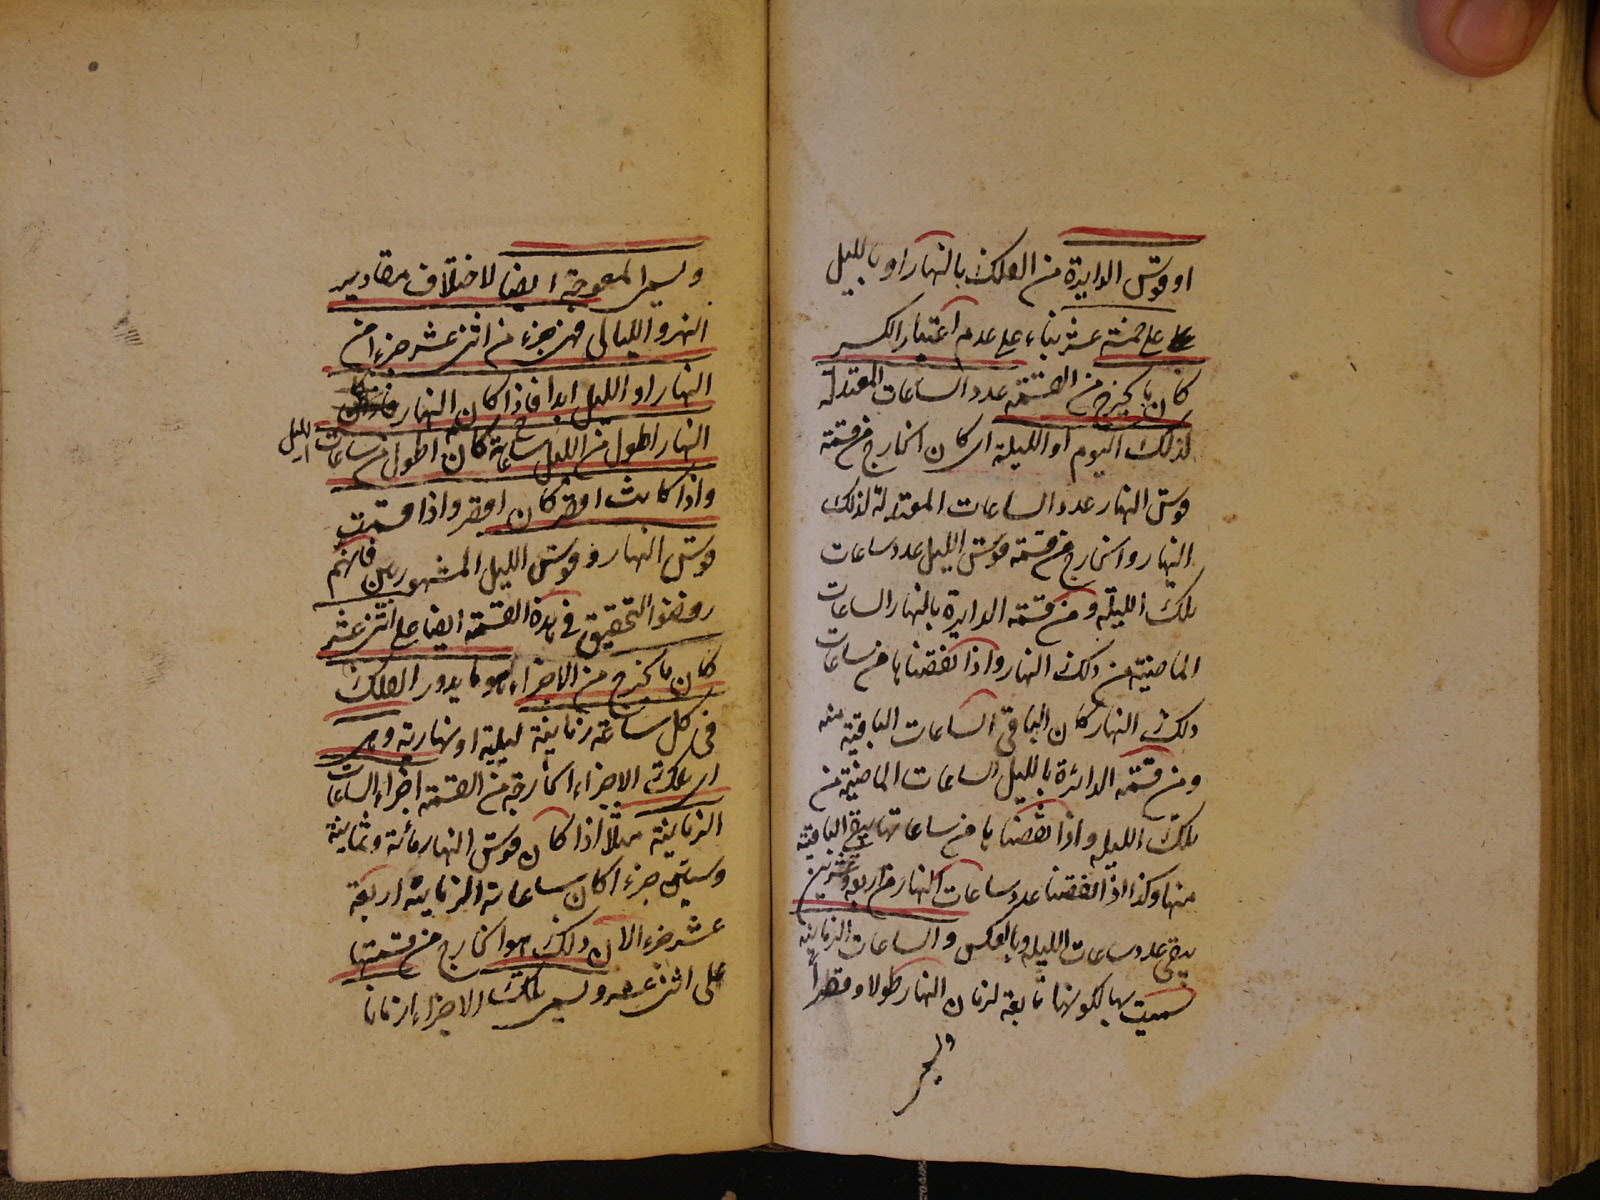 او قوس الدايرة من الفلك بالنهار او بالليل
على خمسة عشر بناء على عدم اعتبار الكسر
كان ما يخرج من القسمة عدد الساعات المعتدلة
لذلك اليوم او الليلة اى كان الخارج من قسمة
قوس النهار عدد الساعات المعتدلة لذلك
النهار والخارج من قسمة قوس الليل عدد ساعات
تلك الليلة ومن قسمة الدايرة بالنهار الساعات
الماضية من ذلك النهار واذا نقصناها من ساعات
ذلك النهار كان الباقى الساعات الباقية منه
ومن قسمة الدائرة بالليل الساعات الماضية من
تلك الليلة واذا نقصناها من ساعاتها يبقى الباقية
منها وكذا اذا نقصنا عدد ساعات النهار من اربعة وعشرين
يبقى عدد ساعات الليلة وبالعكس والساعات الزمانية
سميت بها لكونها تابعة لزمان النهار طولا وقصرا
ويسمى المعوجة ايضا لاختلاف مقادير
النهر والليالى فهى جزء من اثنى عشر جزءا من
النهار او الليل ابدا فاذا كان النهار
النهار اطول من الليل ساعاته كان اطول من ساعات الليل
واذا كانت اقصر كان اقصر واذا قسمت
قوس النهار وقوس الليل المشهورين فانهم
رفضوا التحقيق فى هذه القسمة ايضا على اثنى عشر
كان ما يخرج من الاجزاء هو ما يدور الفلك
فى كل ساعة زمانية ليلية او نهارية وهى
اى تلك الاجزاء الخارجة من القسمة اجزاء الساعات
الزمانية مثلا اذا كان قوس النهار مائة وثمانية
وستين جزءا كان ساعاته الزمانية اربعة
عشر جزءا لان ذلك هو الخارج من قسمتها
على اثنى عشر ويسمى تلك الاجزاء ازمانا